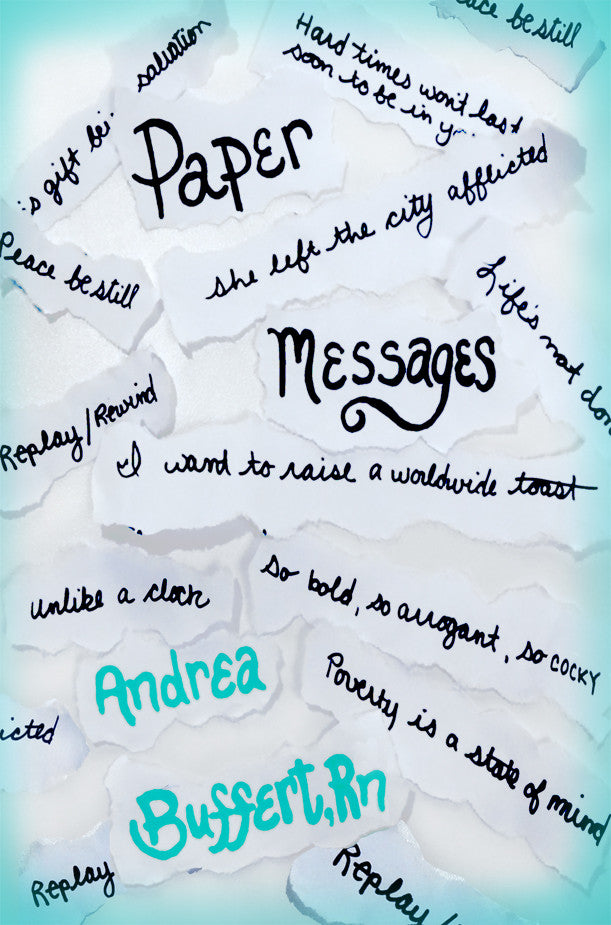 peace be still
salvation
Hard times won't last
soon to be in y
is gift bei
Paper
she left the city afflicted
Peace be still
Life's not don
Messages
Replay/Rewind
I want to raise a worldwide toast
unlike a clock
so bold, so arrogant, so cocky
Andrea
Poverty is a state of mind
icted
Buffert, Rn
Replay
Replay/